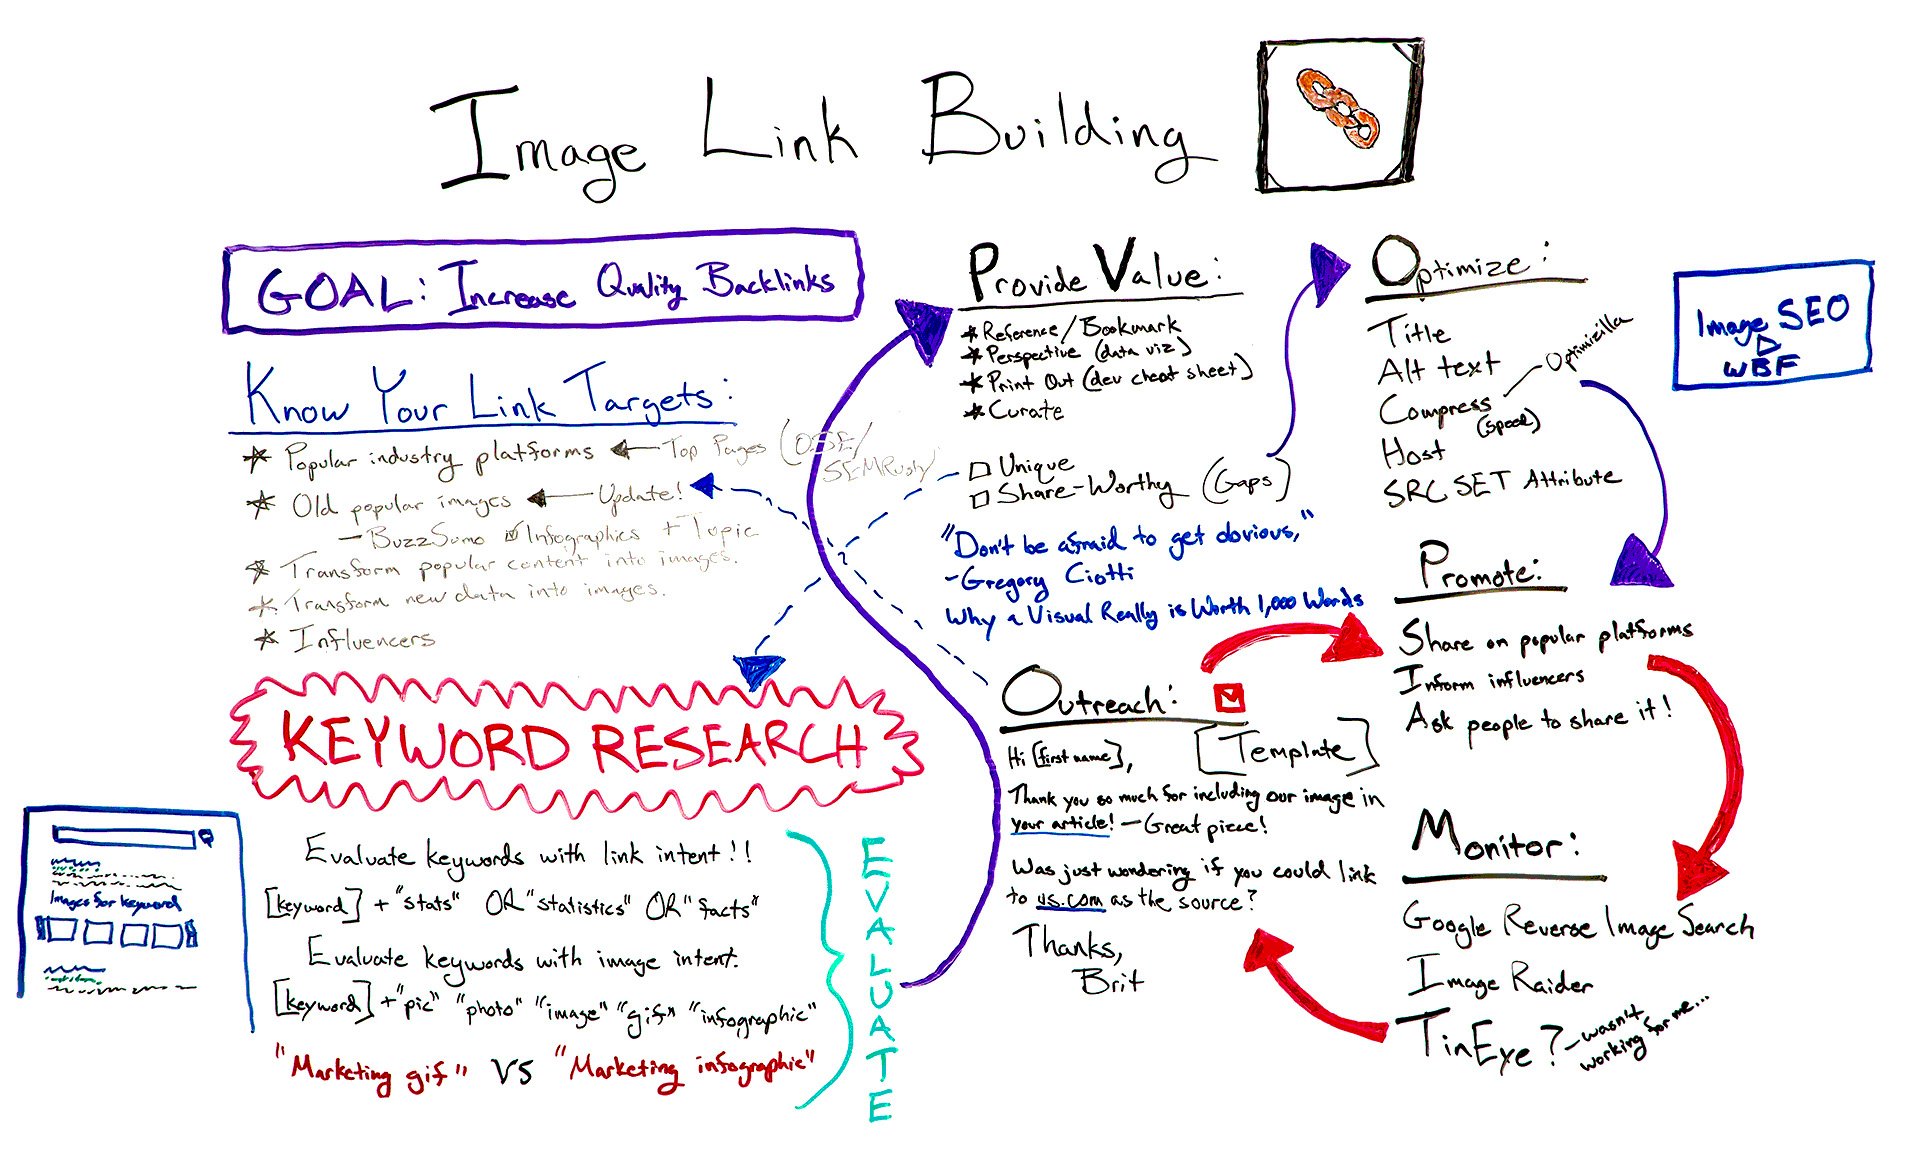 Image Link Building
GOAL: Increase Quality Backlinks
Know Your Link Targets:
* Popular industry platforms ← Top Pages (OSE/
SEMRush)
* Old popular images ← Update!
- BuzzSumo ☑ Infographics + Topic
* Transform popular content into images.
* Transform new data into images.
* Influencers
KEYWORD RESEARCH
Images for keyword
Evaluate keywords with link intent!!
[keyword] + "stats" OR "statistics" OR "facts"
Evaluate keywords with image intent.
[keyword] + "pic" "photo" "image" "gif" "infographic"
"Marketing gif" VS "Marketing infographic"
EVALUATE
Provide Value:
* Reference/Bookmark
* Perspective (data viz)
* Print Out (dev cheat sheet)
* Curate
□ Unique
□ Share-Worthy (Gaps)
"Don't be afraid to get obvious,"
- Gregory Ciotti
Why a Visual Really is Worth 1,000 Words
Optimize:
Title
Alt text
Compress - Optimizilla
(speed)
Host
SRC SET Attribute
Image SEO
WBF
Promote:
Share on popular platforms
Inform influencers
Ask people to share it!
Outreach:
[Template]
Hi [first name],
Thank you so much for including our image in
your article! - Great piece!
Was just wondering if you could link
to us.com as the source?
Thanks,
Brit
Monitor:
Google Reverse Image Search
Image Raider
TinEye? - wasn't
working for me...